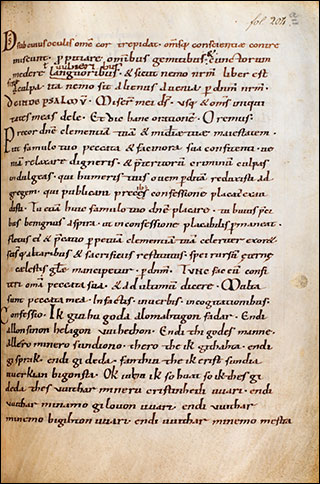 fol. 204
sub cuius oculis omē cor trepidat. omſq; conscientiae contre
miscunt. ppitiare omiū gemitibus. & cunctorum
vulneribus
medere languoribus. & sicut nemo nrm liber est
culpa. ita nemo sit alienus a venia. p dnm nrm.
Deinde psal Miserere mei ds. usq; & oms iniqui
tates meas dele. Et dic hanc orationē. Oremus.
Precor dne clementiā tuā & misdiae tuae maiestatem.
Ut famulo tuo peccata & facinora sua confitenti ve
niā relaxare digneris. & pteritorū criminū culpas
indulgeas. qui humeris tuis ovem pditā reduxisti ad
gregem. qui publicani precibus confessione placatus exau
disti. Tu etiā huic famulo tuo dne placare. tu huius pci
bus benignus aspira. ut in confessione placabilis pmaneat.
fletus ei & petitio ppetuā clementiā tuā celeriter exoret
sq; altaribus & sacrificiis restitutus. spei rursū aeternę
caelestis glę mancipetur. p dnm. Tunc fac eū confi
teri omā peccata sua. & ad ultimū dicere. Multa
sunt peccata mea. In factis. in verbis. in cogitationibus.
Confessio. Ik giuhu goda alomahtigon fadar. Endi
allon sinon helagon uuihethon. Endi thi godes manne.
Allero minero sundiono. thero the ik githahta. endi
gisprak. endi gideda. fan thiu the ik erist sundia
uuerkian bigonsta. Ok iuhu ik so huat so ik thes gi
deda thes uuithar mineru cristinhedi uuari. endi uuithar
minamo gilouon uuari. endi uuithar
minemo bigihton uuari endi uuithar minemo mestra